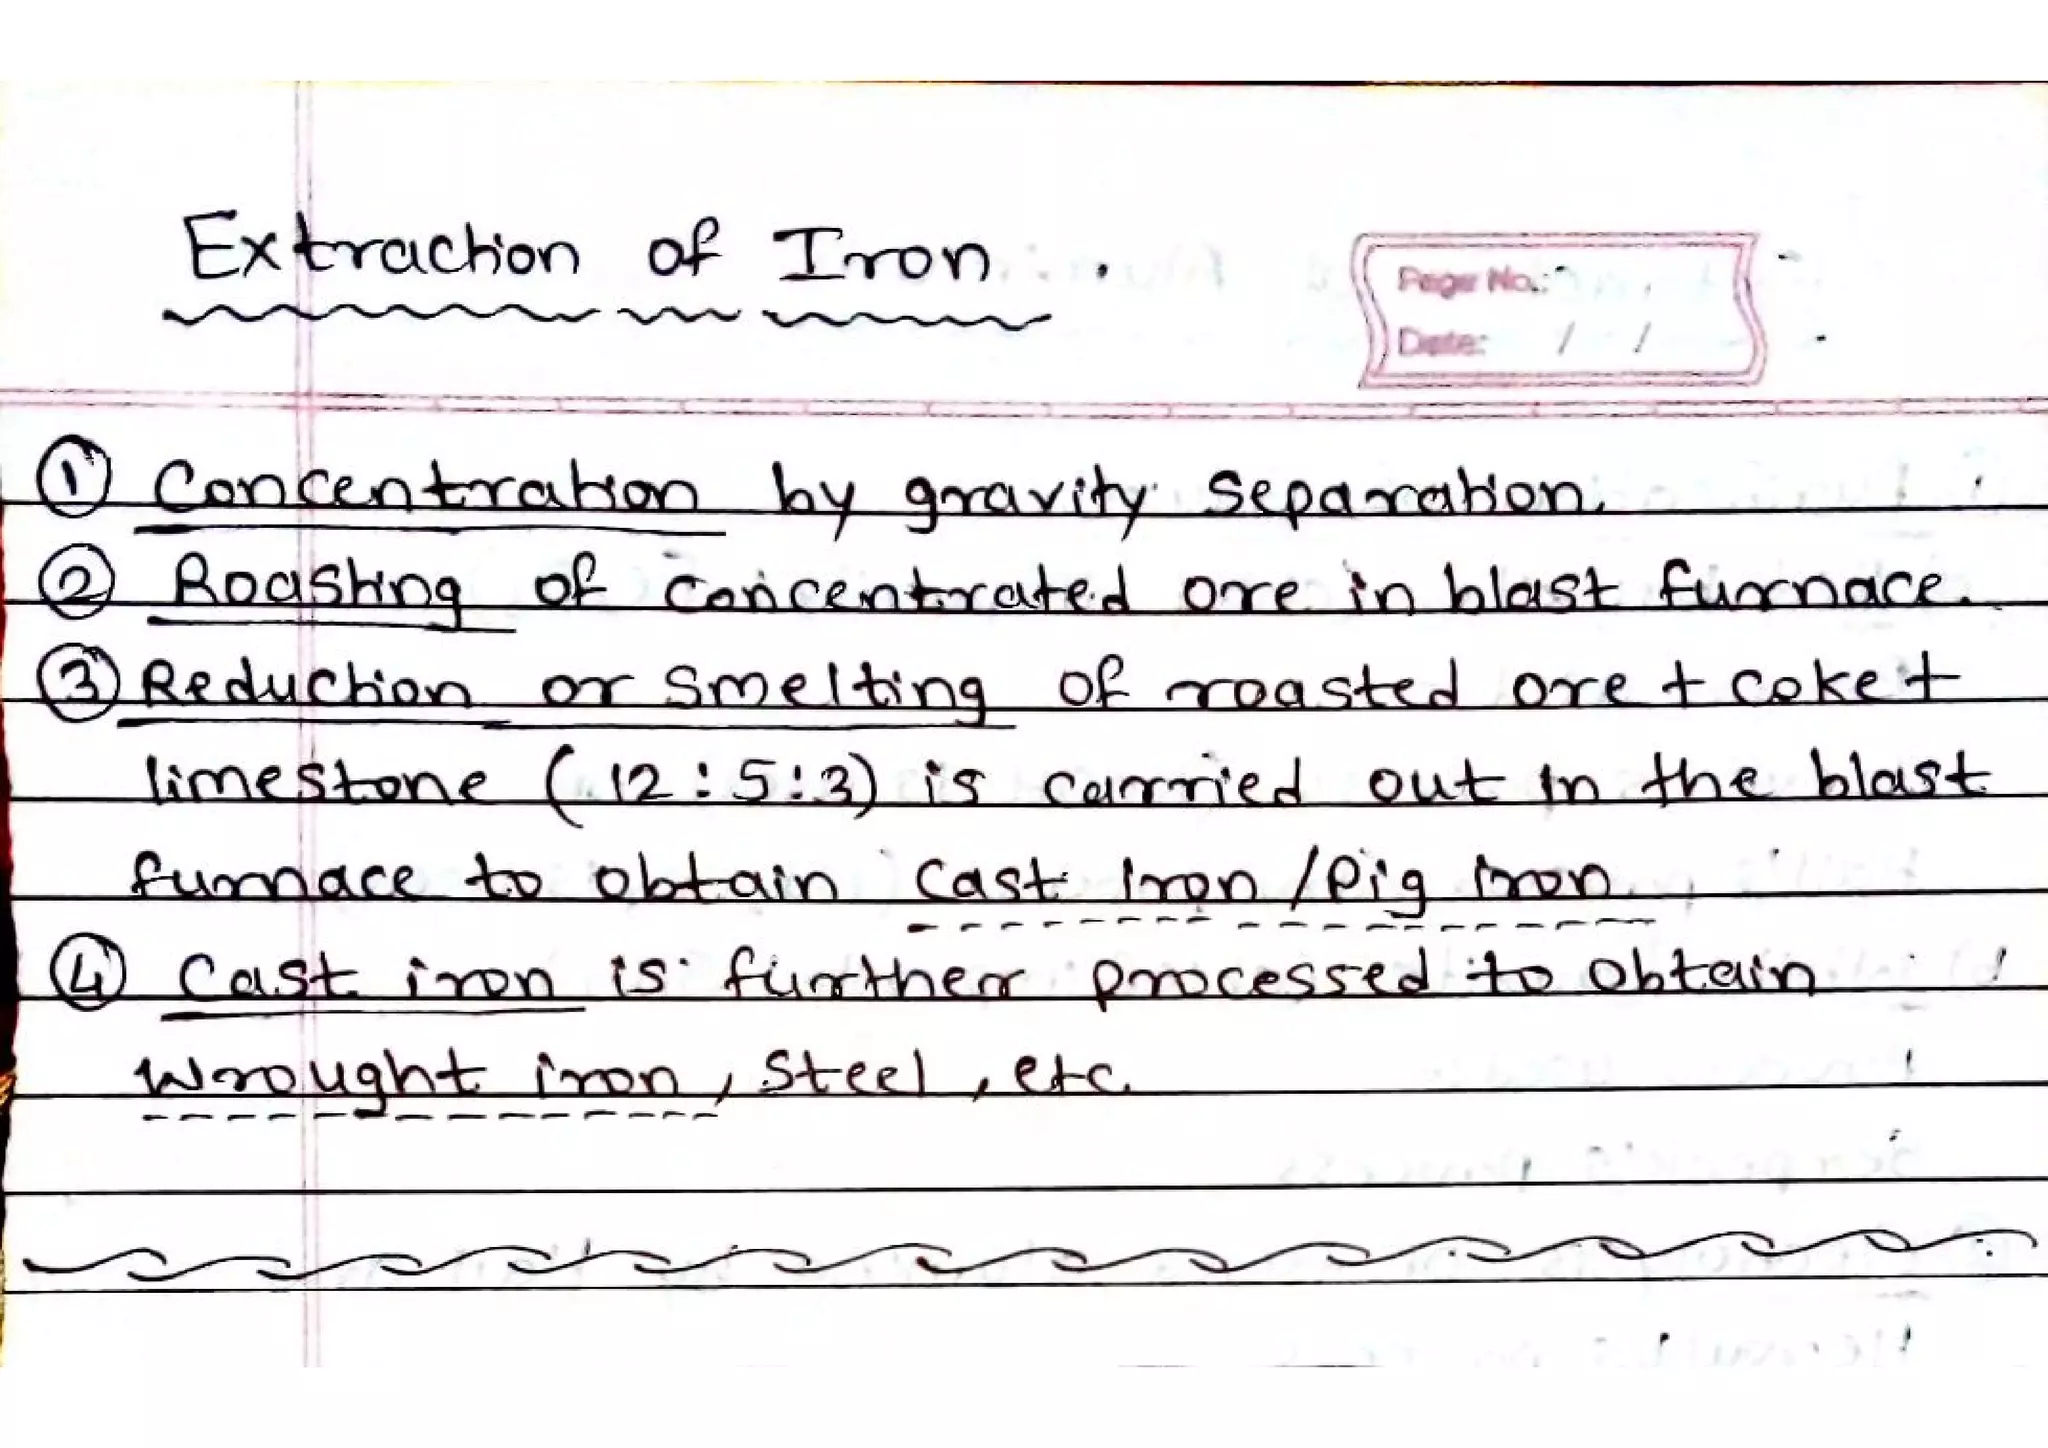 Extraction of Iron
Page No.:
Date: / /
① Concentration by gravity separation.
② Roasting of concentrated ore in blast furnace.
③ Reduction or smelting of roasted ore + coke +
limestone (12:5:3) is carried out in the blast
furnace to obtain cast iron/Pig iron.
④ Cast iron is further processed to obtain
wrought iron, steel, etc.